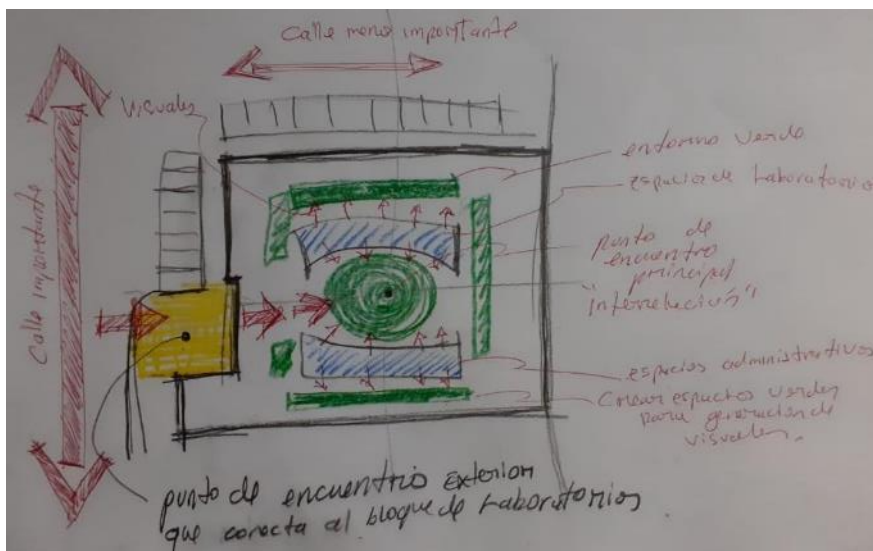 Calle menos importante
Visuales
Calle importante
entorno verde
espacios de Laboratorios
punto de
encuentro
principal
"interrelación"
espacios administrativos
Crear espacios verdes
para generación de
visuales.
punto de encuentro Exterior
que conecta al bloque de Laboratorios